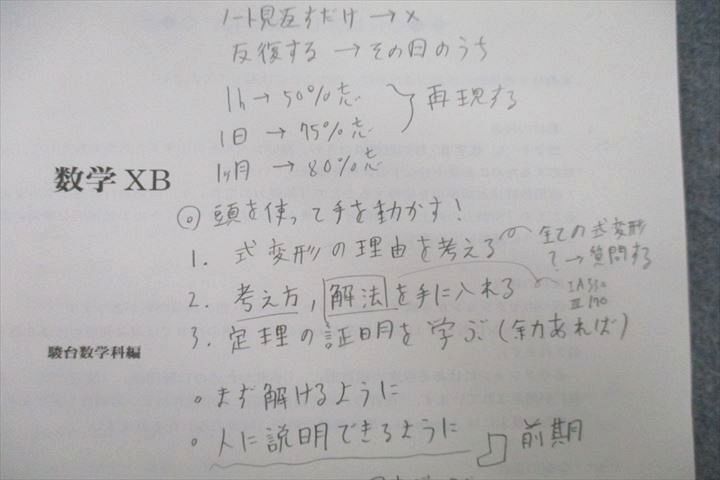 ノート見返すだけ → ×
反復する → その日のうち
1h → 50%忘
1日 → 75%忘
1ヶ月 → 80%忘
再現する
数学 XB
◎ 頭を使って手を動かす!
1. 式変形の理由を考える
全ての式変形
? → 質問する
2. 考え方, 解法を手に入れる
IA330
Ⅲ170
3. 定理の証明を学ぶ (余力あれば)
駿台数学科編
・まず解けるように
・人に説明できるように
前期